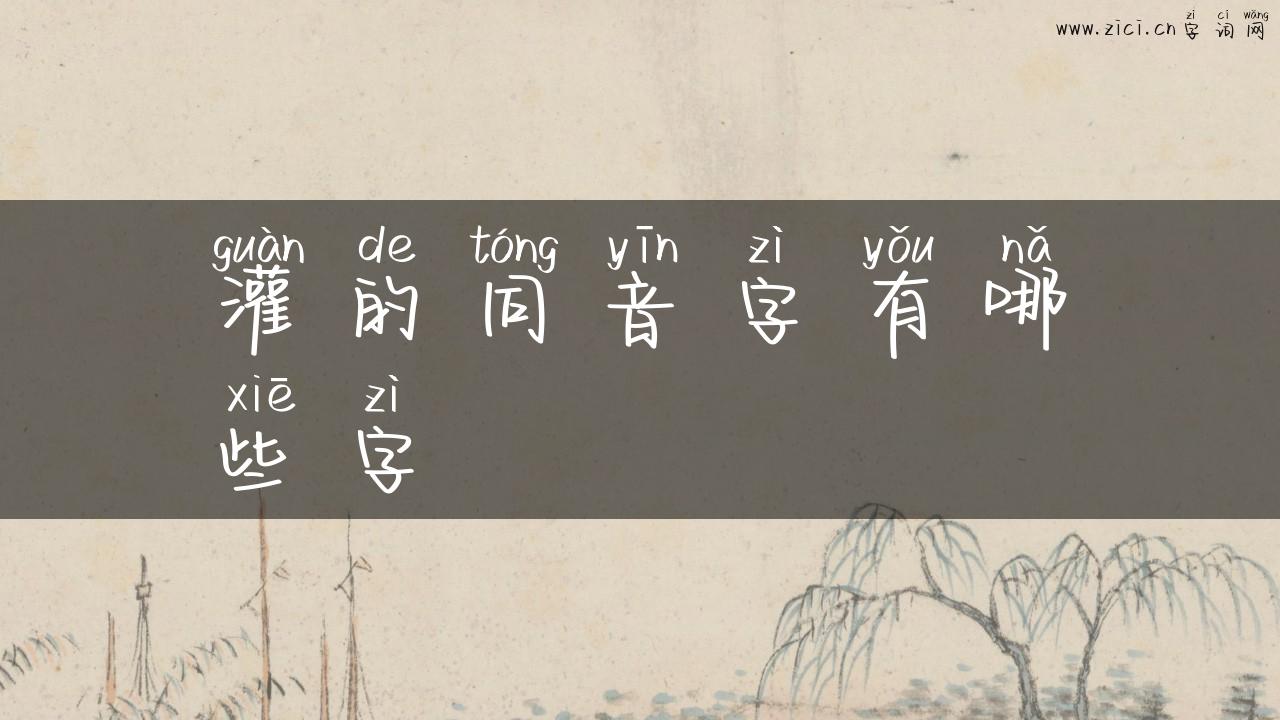 zì cí wǎng
www.zici.cn 字 词 网
guàn de tóng yīn zì yǒu nǎ
灌 的 同 音 字 有 哪
xiē zì
些 字